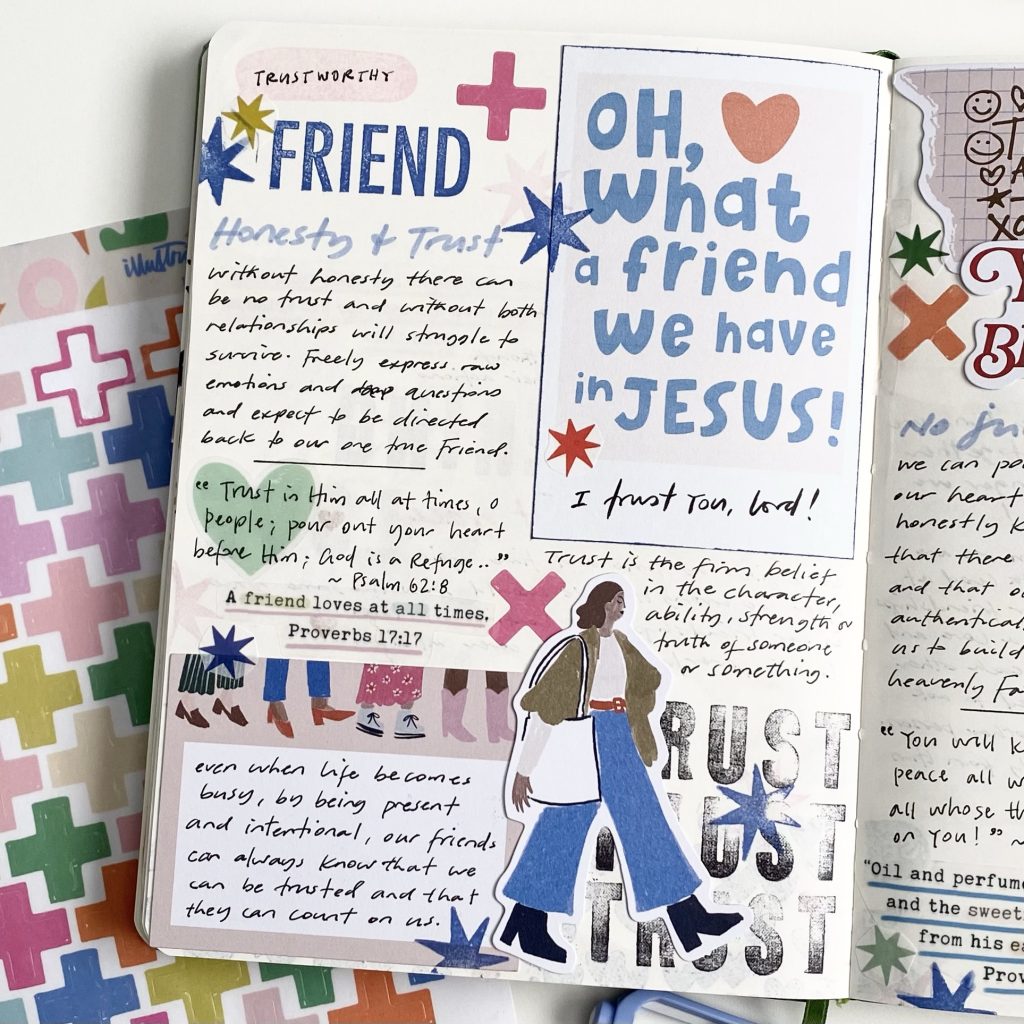 TRUSTWORTHY
FRIEND
Honesty & Trust
without honesty there can
be no trust and without both
relationships will struggle to
survive. Freely express raw
emotions and deep questions
and expect to be directed
back to our one true Friend.
"Trust in Him all at times, O
people; pour out your heart
before Him; God is a Refuge.."
~ Psalm 62:8
A friend loves at all times.
Proverbs 17:17
even when life becomes
busy, by being present
and intentional, our friends
can always know that we
can be trusted and that
they can count on us.
OH,
what
a friend
we have
in JESUS!
I trust You, Lord!
Trust is the firm belief
in the character,
ability, strength or
truth of someone
or something.
RUST
UST
TRUST
No
we can
our heart
honestly
that there
and that
authentical
us to build
heavenly
"You will
peace all
all whose
on You!" ~
"Oil and perfume
and the sweet
from his
Prov